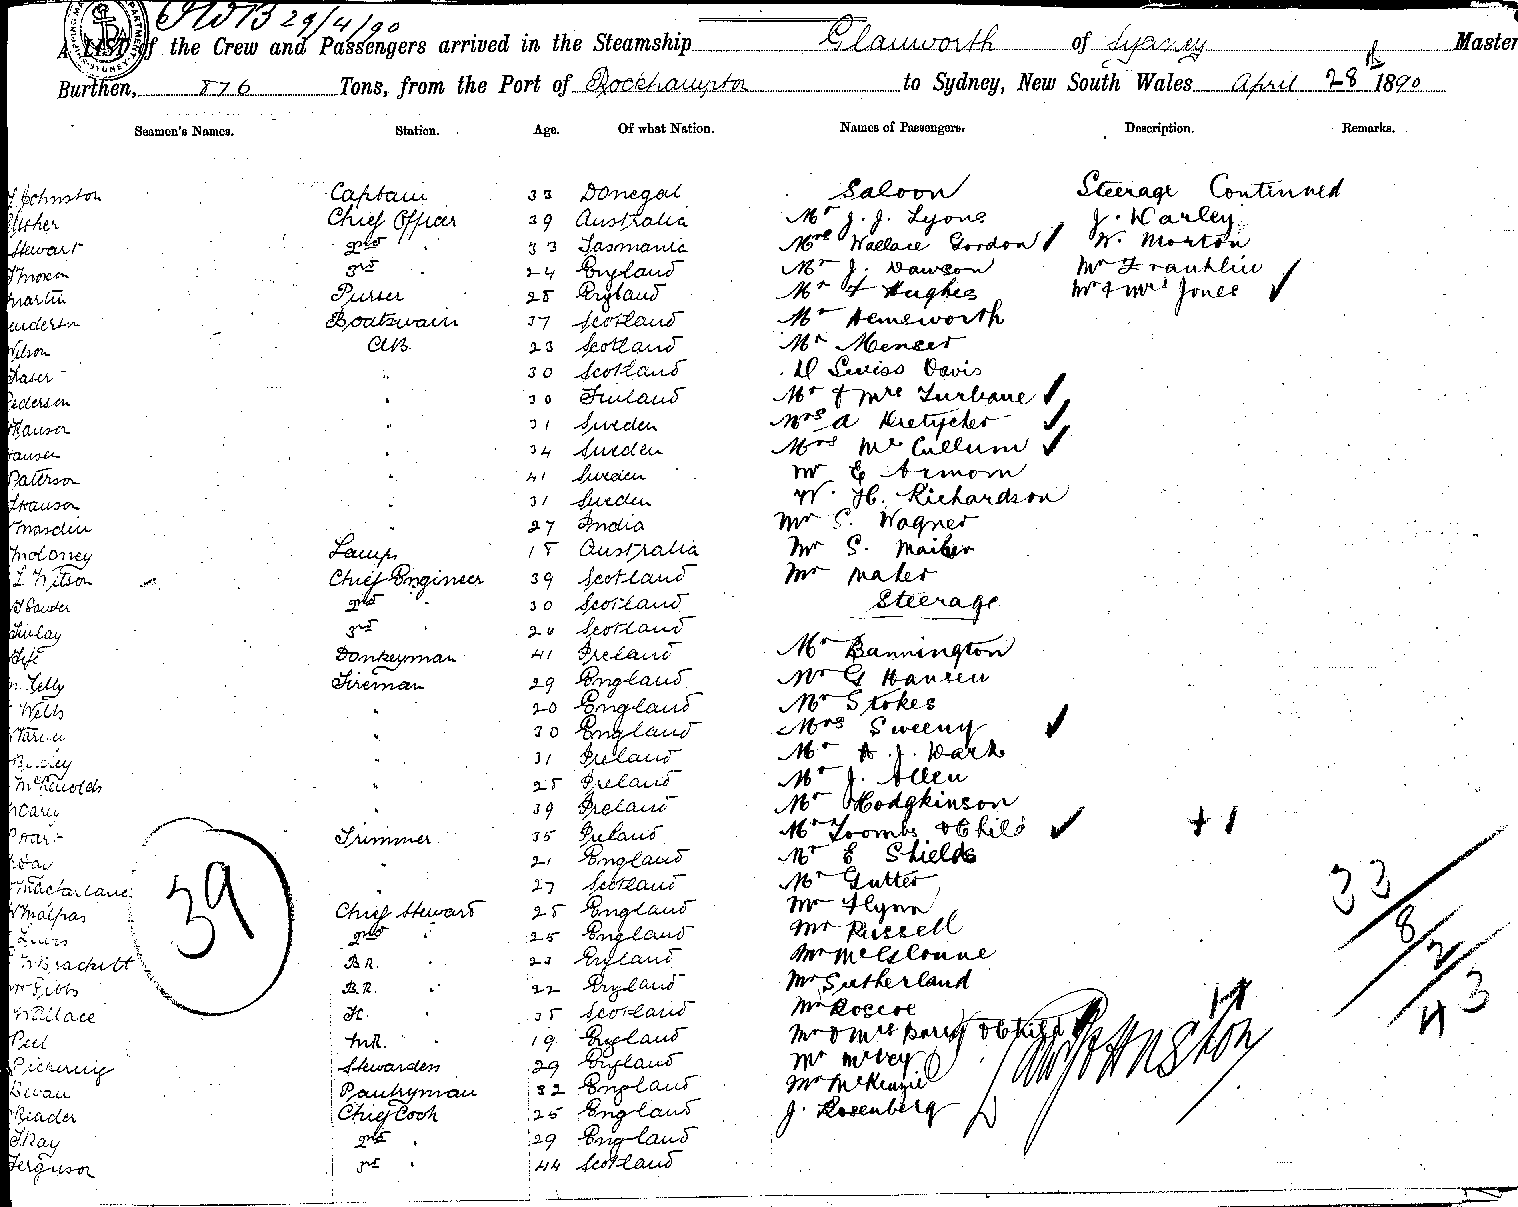 29/4/90
A LIST of the Crew and Passengers arrived in the Steamship Glanworth of Sydney Master
Burthen, 876 Tons, from the Port of Rockhampton to Sydney, New South Wales April 28th 1890
Seamen's Names. Station. Age. Of what Nation. Names of Passengers. Description. Remarks.
Johnston Captain 33 Donegal Saloon Steerage Continued
Usher Chief Officer 39 Australia Mr J. J. Lyons J. Warley
Stewart 2nd " 33 Tasmania Mrs Wallace Gordon W. Morton
3rd " 24 England Mr J. Dawson Mr Franklin
Martin Purser 28 England Mr F Hughes Mr & Mrs Jones
Boatswain 37 Scotland Mr Hemsworth
Wilson AB 23 Scotland Mr Menser
Fraser " 30 Scotland D Swiss Davis
Pederson " 30 Finland Mr & Mrs Turbane
Hanson " 31 Sweden Mrs A Kretycher
Hansen " 34 Sweden Mrs McCullum
Paterson " 41 Sweden Mr E Armom
Swanson " 31 Sweden W. H. Richardson
Marsden " 27 India Mr S. Wagner
Moloney Lamps 18 Australia Mr S. Maiber
Chief Engineer 39 Scotland Mr Maher
2nd " 30 Scotland Steerage
Finlay 3rd " 26 Scotland
Fife Donkeyman 41 Ireland Mr Bannington
Kelly Fireman 29 England Mr G Hansen
Wells " 20 England Mr Stokes
" 30 England Mrs Sweeny
" 31 Ireland Mr A. J. Wark
McReynolds " 25 Ireland Mr J. Allen
Carey " 39 Ireland Mr Hodgkinson
Trimmer 35 Ireland Mr Toombs & Child + 1
Day " 21 England Mr E Shields
Macfarlane " 27 Scotland Mr Gutter
Malpas Chief Steward 25 England Mr Flynn
2nd " 25 England Mr Russell
Brackett B.R. 23 England Mr McGlonne
Gibbs B.R. " 22 England Mr Sutherland
Wallace 35 Scotland Mr Roscoe
Peel 19 England Mr & Mrs Barry & Child
Pickering Stewardess 29 England Mr McVey
Bevan Pantryman 32 England Mr McKenzie
Reader Chief Cook 25 England J. Rosenberg
Ray 2nd " 29 England
Ferguson 3rd " 44 Scotland
39
33
8
2
43
Johnston